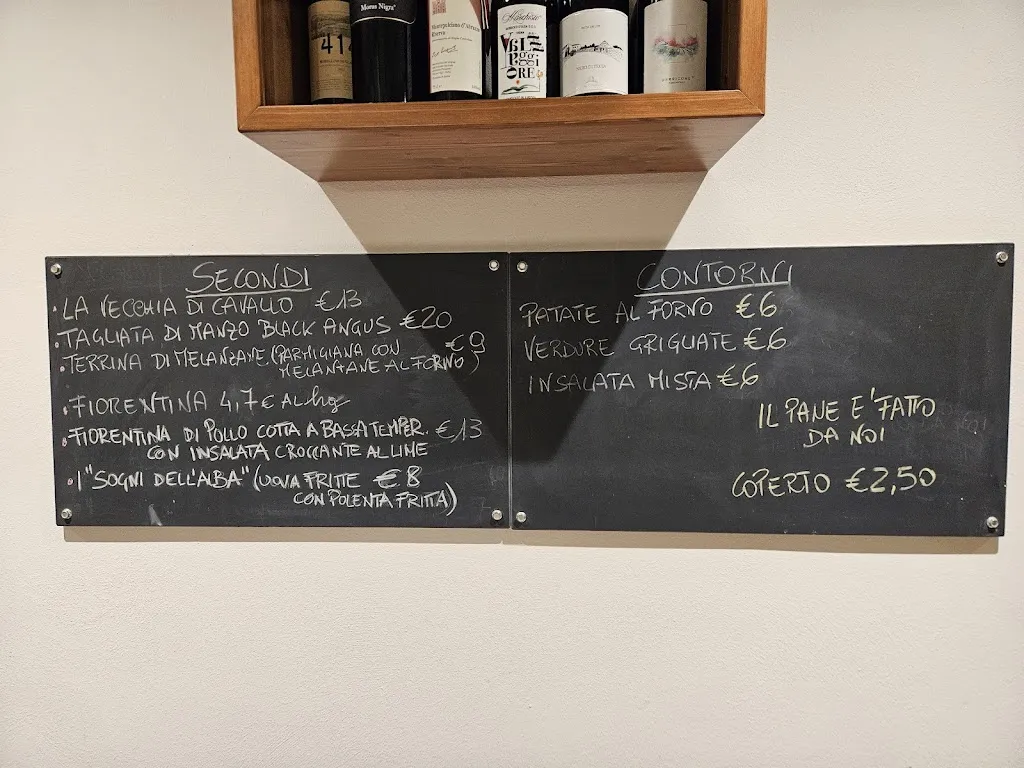 414
Morus Nigra
Montepulciano d'Abruzzo
Riserva
SECONDI
• LA VECCHIA DI CAVALLO €13
• TAGLIATA DI MANZO BLACK ANGUS €20
• TERRINA DI MELANZANE (PARMIGIANA CON €9
MELANZANE AL FORNO)
• FIORENTINA 4,7€ AL hg
• FIORENTINA DI POLLO COTTA A BASSA TEMPER. €13
CON INSALATA CROCCANTE AL LIME
• I "SOGNI DELL'ALBA" (UOVA FRITTE €8
CON POLENTA FRITTA)
CONTORNI
PATATE AL FORNO €6
VERDURE GRIGLIATE €6
INSALATA MISTA €6
IL PANE E' FATTO
DA NOI
COPERTO €2,50